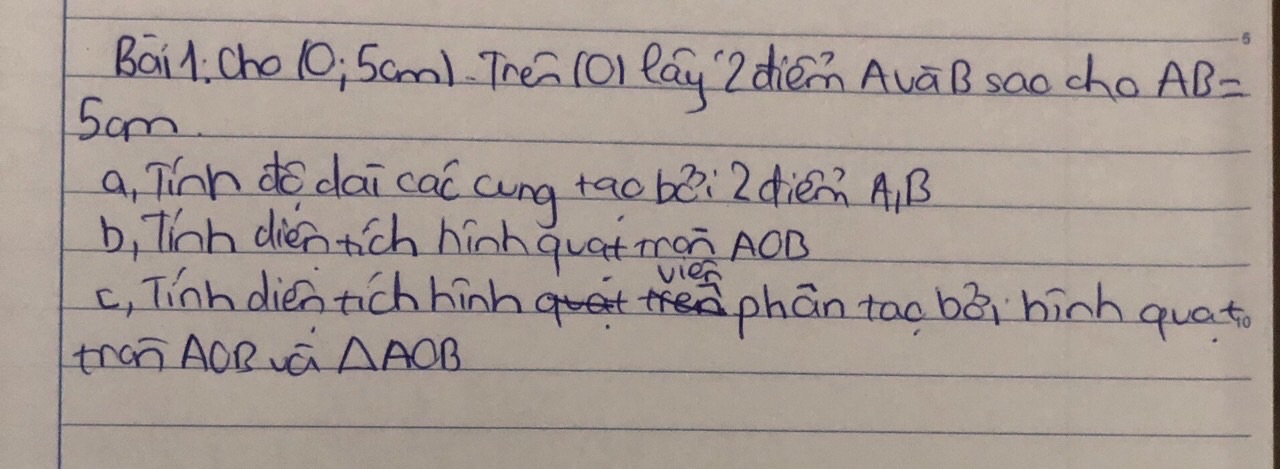 Bài 1: Cho (O; 5cm). Trên (O) lấy 2 điểm A và B sao cho AB =
5cm.
a, Tính độ dài các cung tạo bởi 2 điểm A, B
b, Tính diện tích hình quạt tròn AOB
c, Tính diện tích hình quạt trên viên phân tạo bởi hình quạt
tròn AOB và △AOB